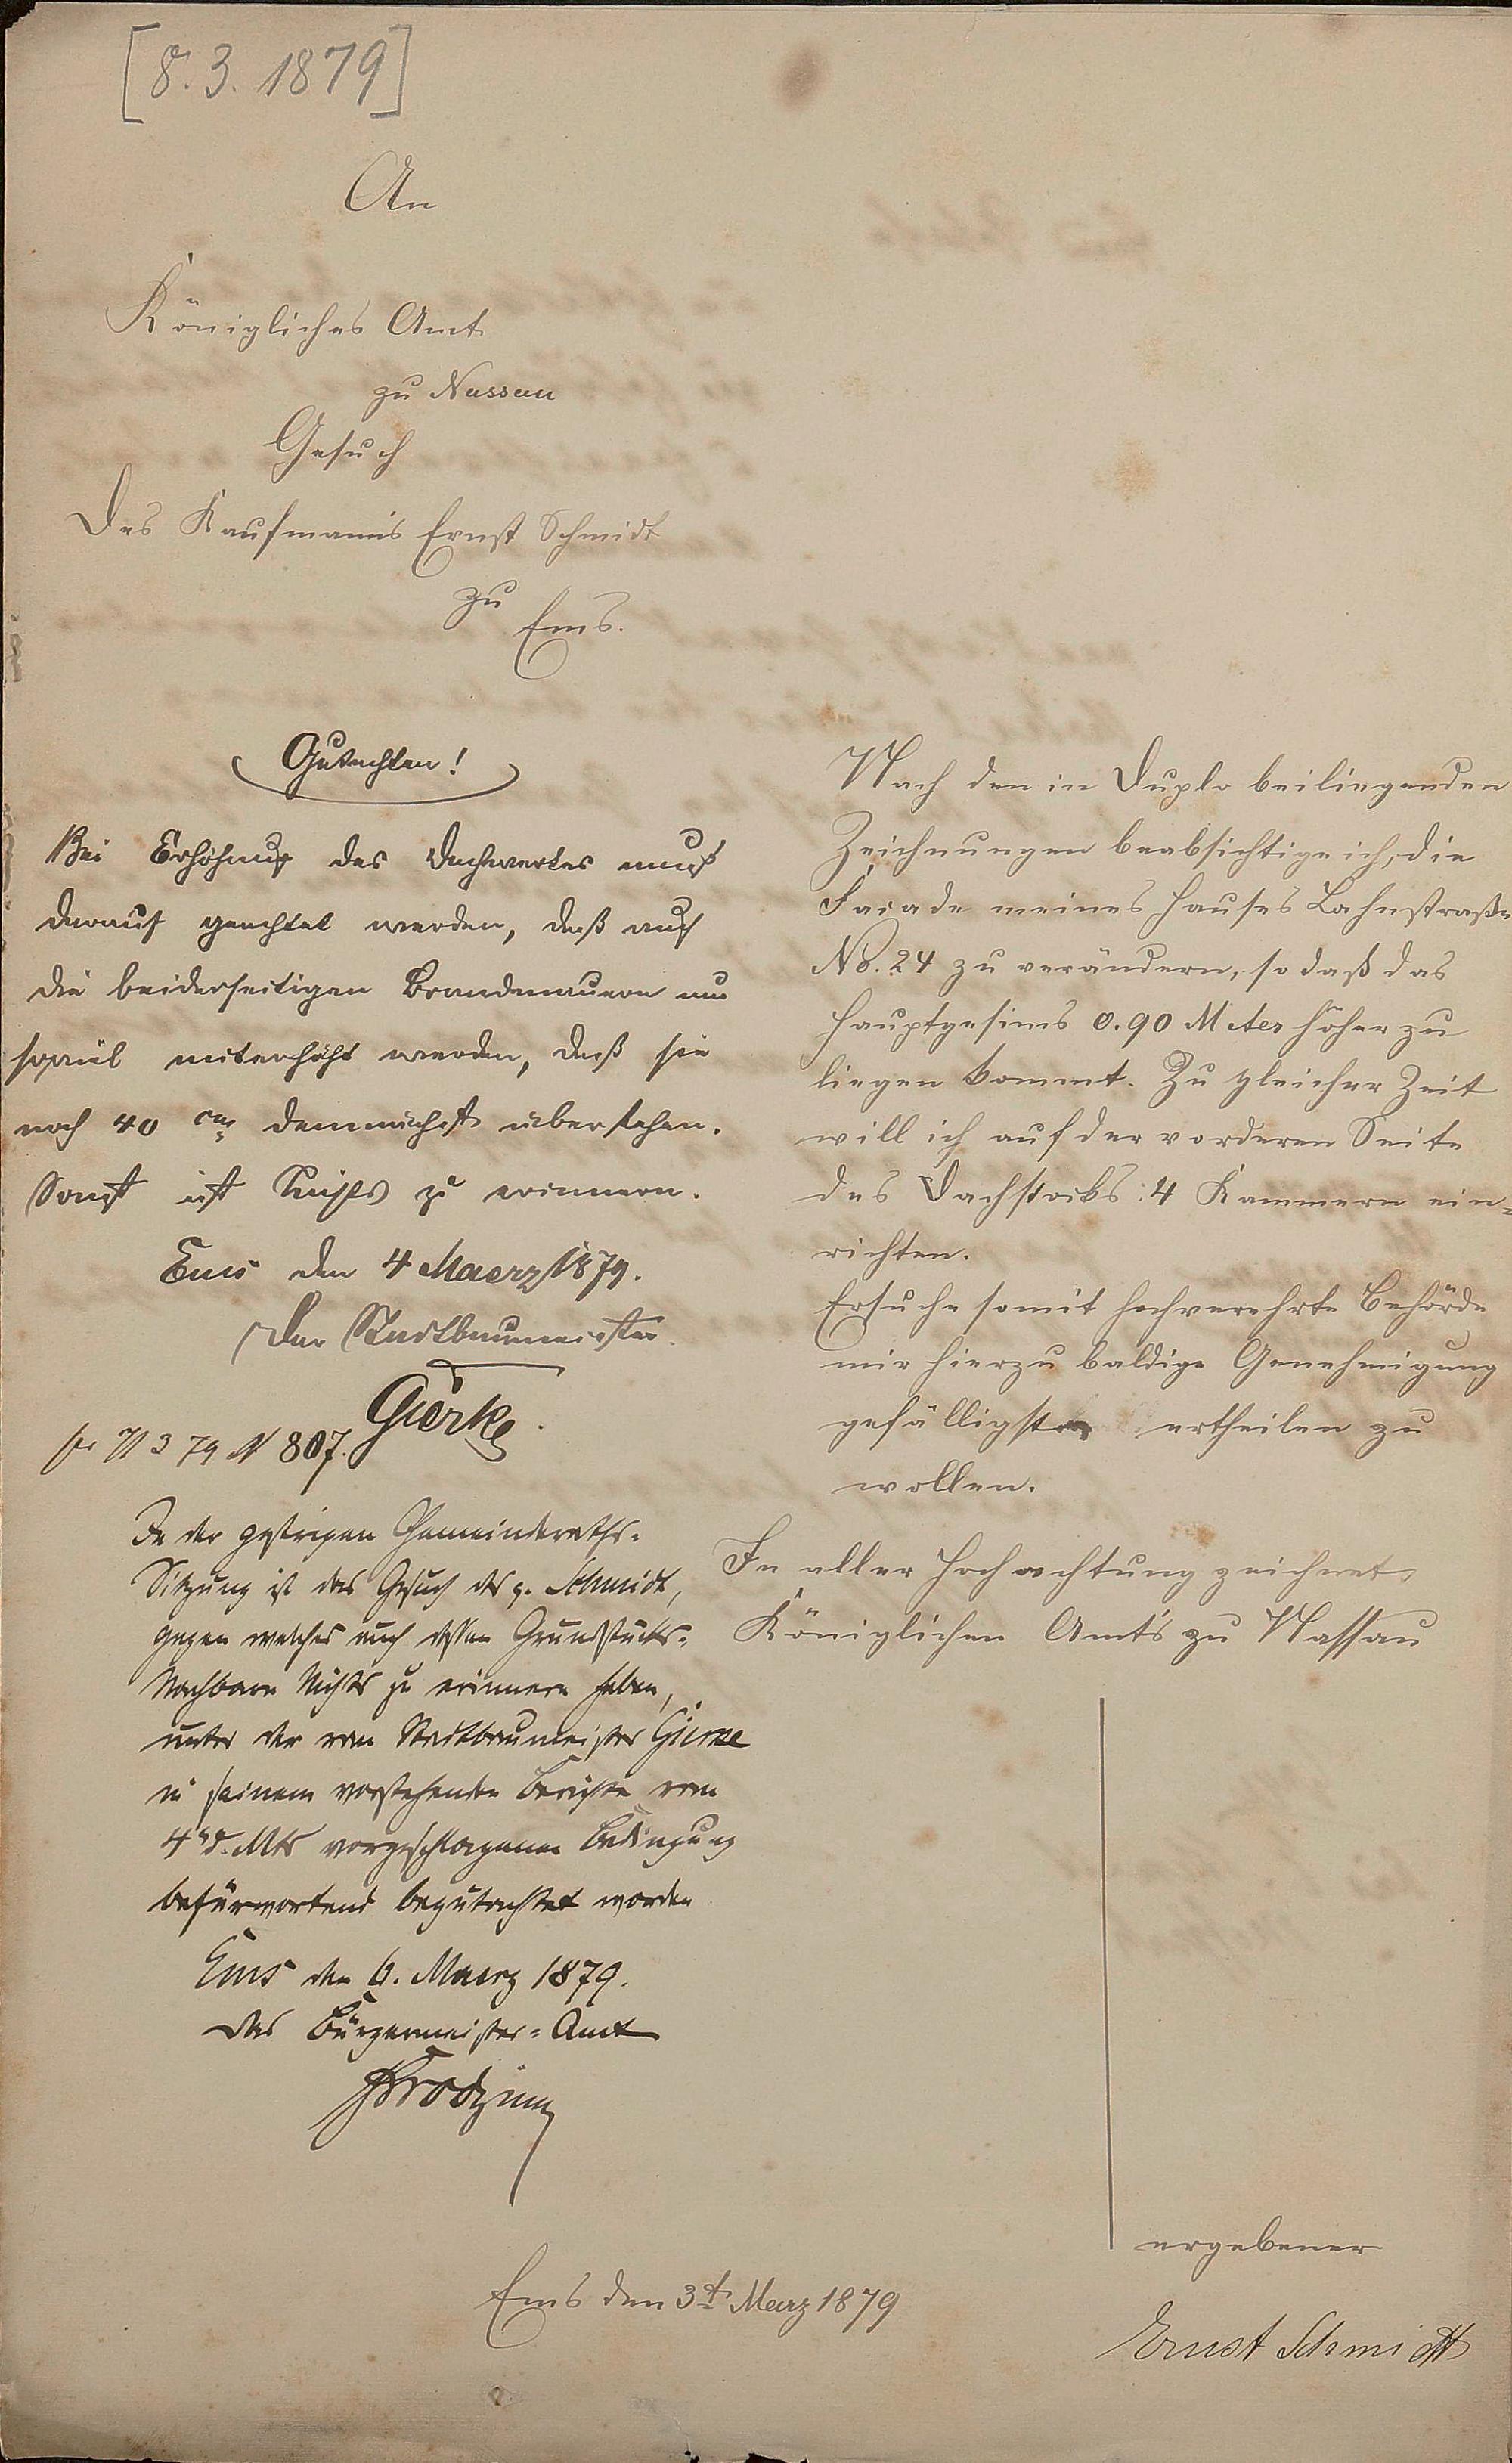 [8.3.1879]
An
Königliches Amt
zu Nassau
Gesuch
Des Kaufmanns Ernst Schmidt
zu
Ems.
Nach den in Duplo beiliegenden
Zeichnungen beabsichtige ich, die
Façade meines Hauses Lahnstraße
No. 24 zu verändern, so daß das
Hauptgesims 0.90 Meter höher zu
liegen kommt. Zu gleicher Zeit
will ich auf der vorderen Seite
des Dachstocks: 4 Kammern ein=
richten.
Ersuche somit hochverehrte Behörde
mir hierzu baldige Genehmigung
gefälligst ertheilen zu
wollen.
In aller Hochachtung zeichnet
Königlichen Amts zu Nassau
ergebener
Ems den 3t. März 1879
Ernst Schmidt
Gutachten!
Bei Erhöhung des Dachwerkes muß
darauf geachtet werden, daß auch
die beiderseitigen Brandmauern um
soviel miterhöht werden, daß sie
noch 40 cm demnächst überstehen.
Sonst ist Nichts zu erinnern.
Ems den 4 Maerz 1879.
Der Stadtbaumeister
Gierke.
pr 7/3 79 N 807.
In der gestrigen Gemeinderaths=
Sitzung ist das Gesuch des p. Schmidt,
gegen welches auch dessen Grundstücks=
Nachbarn Nichts zu erinnern haben,
unter der vom Stadtbaumeister Gierke
in seinem vorstehenden Berichte vom
4n d. Mts vorgeschlagenen Bedingung
befürwortend begutachtet worden
Ems den 6. Maerz 1879.
Das Bürgermeister=Amt